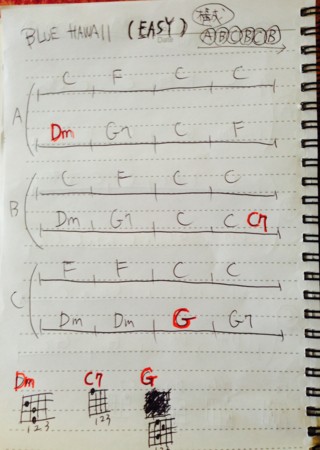 BLUE HAWAII (EASY) ABCBCB
A
C F C C
Dm G7 C F
B
C F C C
Dm G7 C C C7
C
F F C C
Dm Dm G G7
Dm C7 G
1 2 3 1 2 3 1 2 3